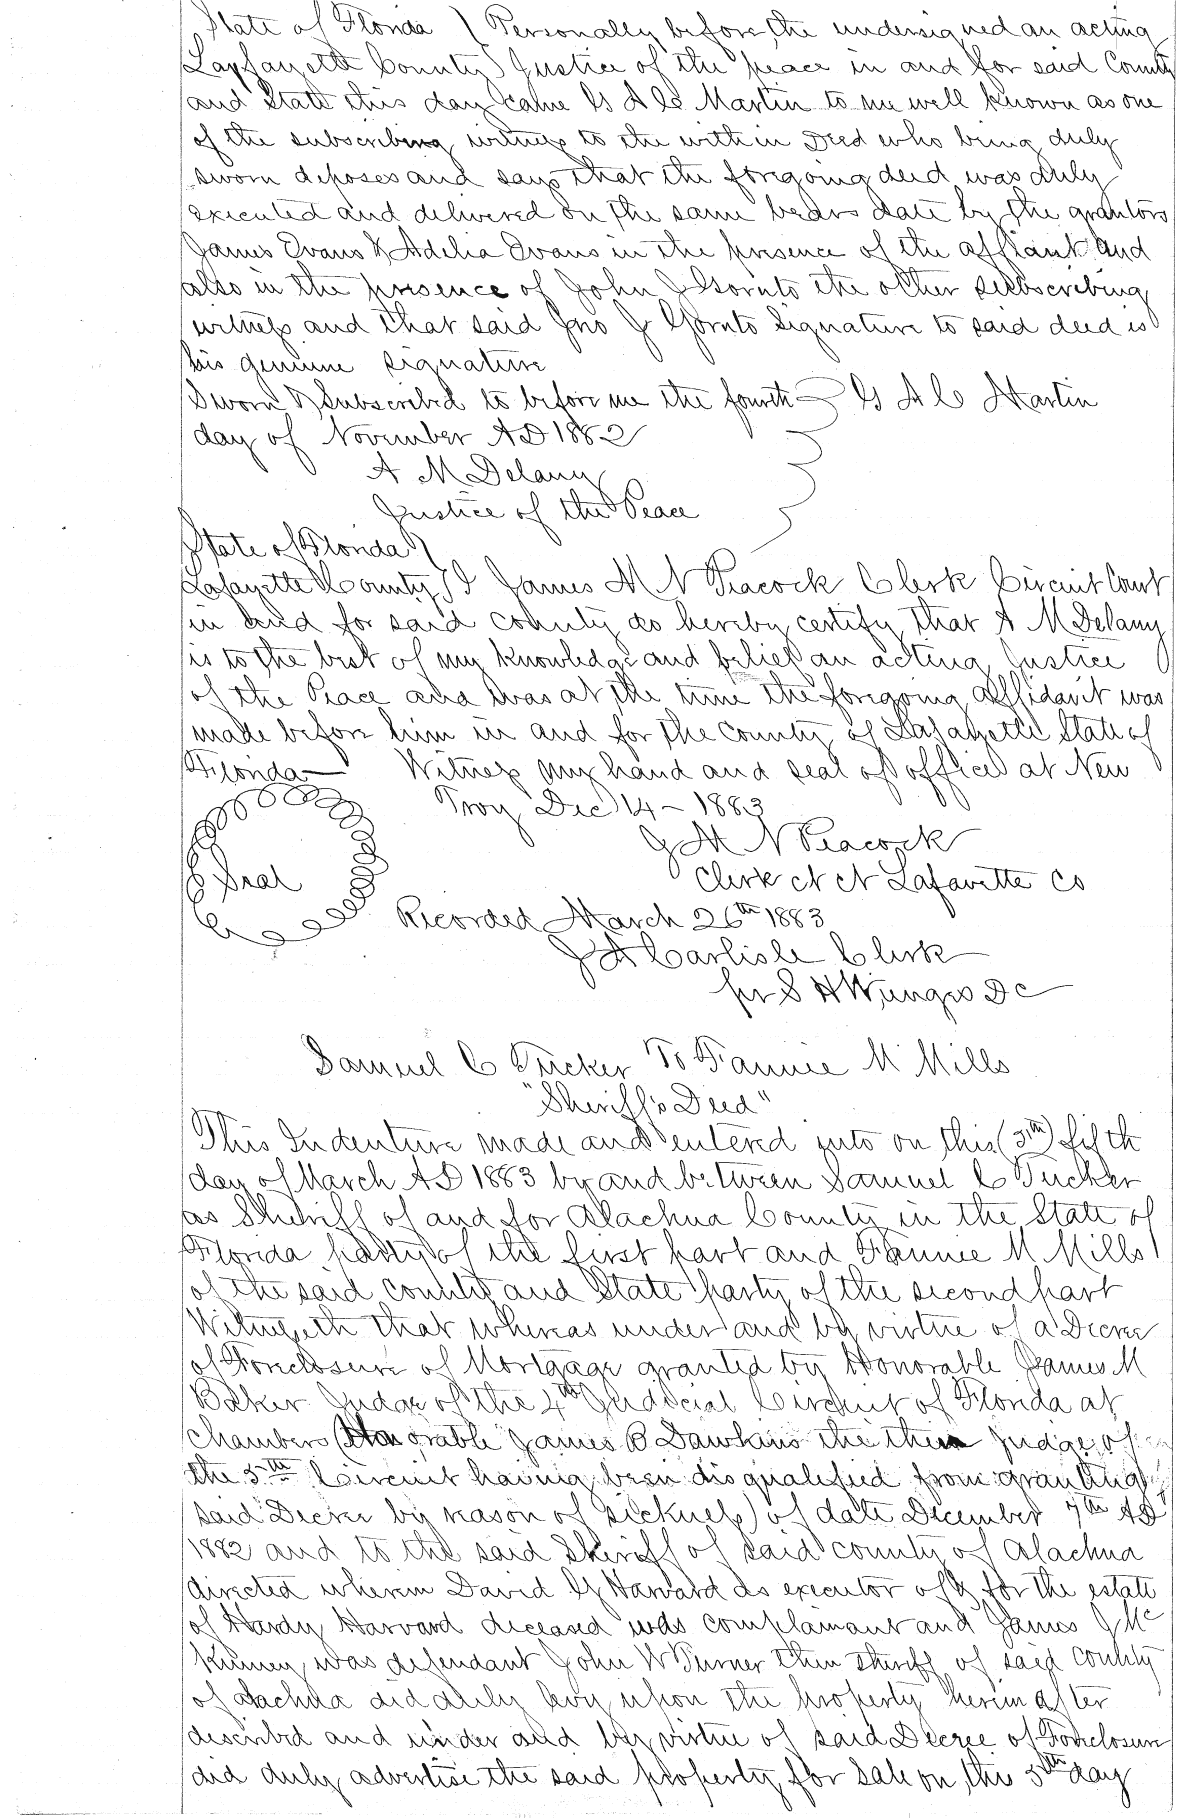 State of Florida } Personally before, the undersigned an acting
Layfayette County } Justice of the peace in and for said County
and State this day came G A C Martin to me well known as one
of the subscribing witness to the within Deed who being duly
sworn deposes and says that the foregoing deed was duly
executed and delivered on the same bears date by the grantors
James Evans & Adelia Evans in the presence of the affiant and
also in the presence of John J Gornto the other subscribing
witness and that said Jno J Gornto Signature to said deed is
his genuine signature
Sworn & Subscribed to before me the fourth } G A C Martin
day of November AD 1882
A M Delany
Justice of the Peace
State of Florida }
Lafayette County } I James M N Peacock Clerk Circuit Court
in and for said county do hereby certify that A M Delany
is to the best of my knowledge and belief an acting Justice
of the Peace and was at the time the foregoing affidavit was
made before him in and for the County of Lafayette State of
Florida — Witness my hand and seal of office at New
Troy Dec 14 - 1883
J M N Peacock
Seal
Clerk ct ct Lafayette Co
Recorded March 26th 1883
J A Carlisle Clerk
per S H Wienges DC
Samuel C Tucker To Fannie M Mills
"Sheriff's Deed"
This Indenture made and entered into on this (5th) fifth
day of March AD 1883 by and between Samuel C Tucker
as Sheriff of and for Alachua County in the State of
Florida party of the first part and Fannie M Mills
of the said county and State party of the second part
Witnesseth that whereas under and by virtue of a Decree
of Foreclosure of Mortgage granted by Honorable James M
Baker Judge of the 4th Judicial Circuit of Florida at
Chambers (Honorable James B Dawkins the then Judge of
the 5th Circuit having been disqualified from granting
said Decree by reason of sickness) of date December 7th AD
1882 and to the said Sheriff of said county of Alachua
directed wherein David G Harvard as executor of & for the estate
of Hardy Harvard deceased was complainant and James J Mc
Kinney was defendant John W Turner then Sheriff of said county
of Alachua did duly levy upon the property herein after
described and under and by virtue of said Decree of Foreclosure
did duly advertise the said property for sale on this 5th day